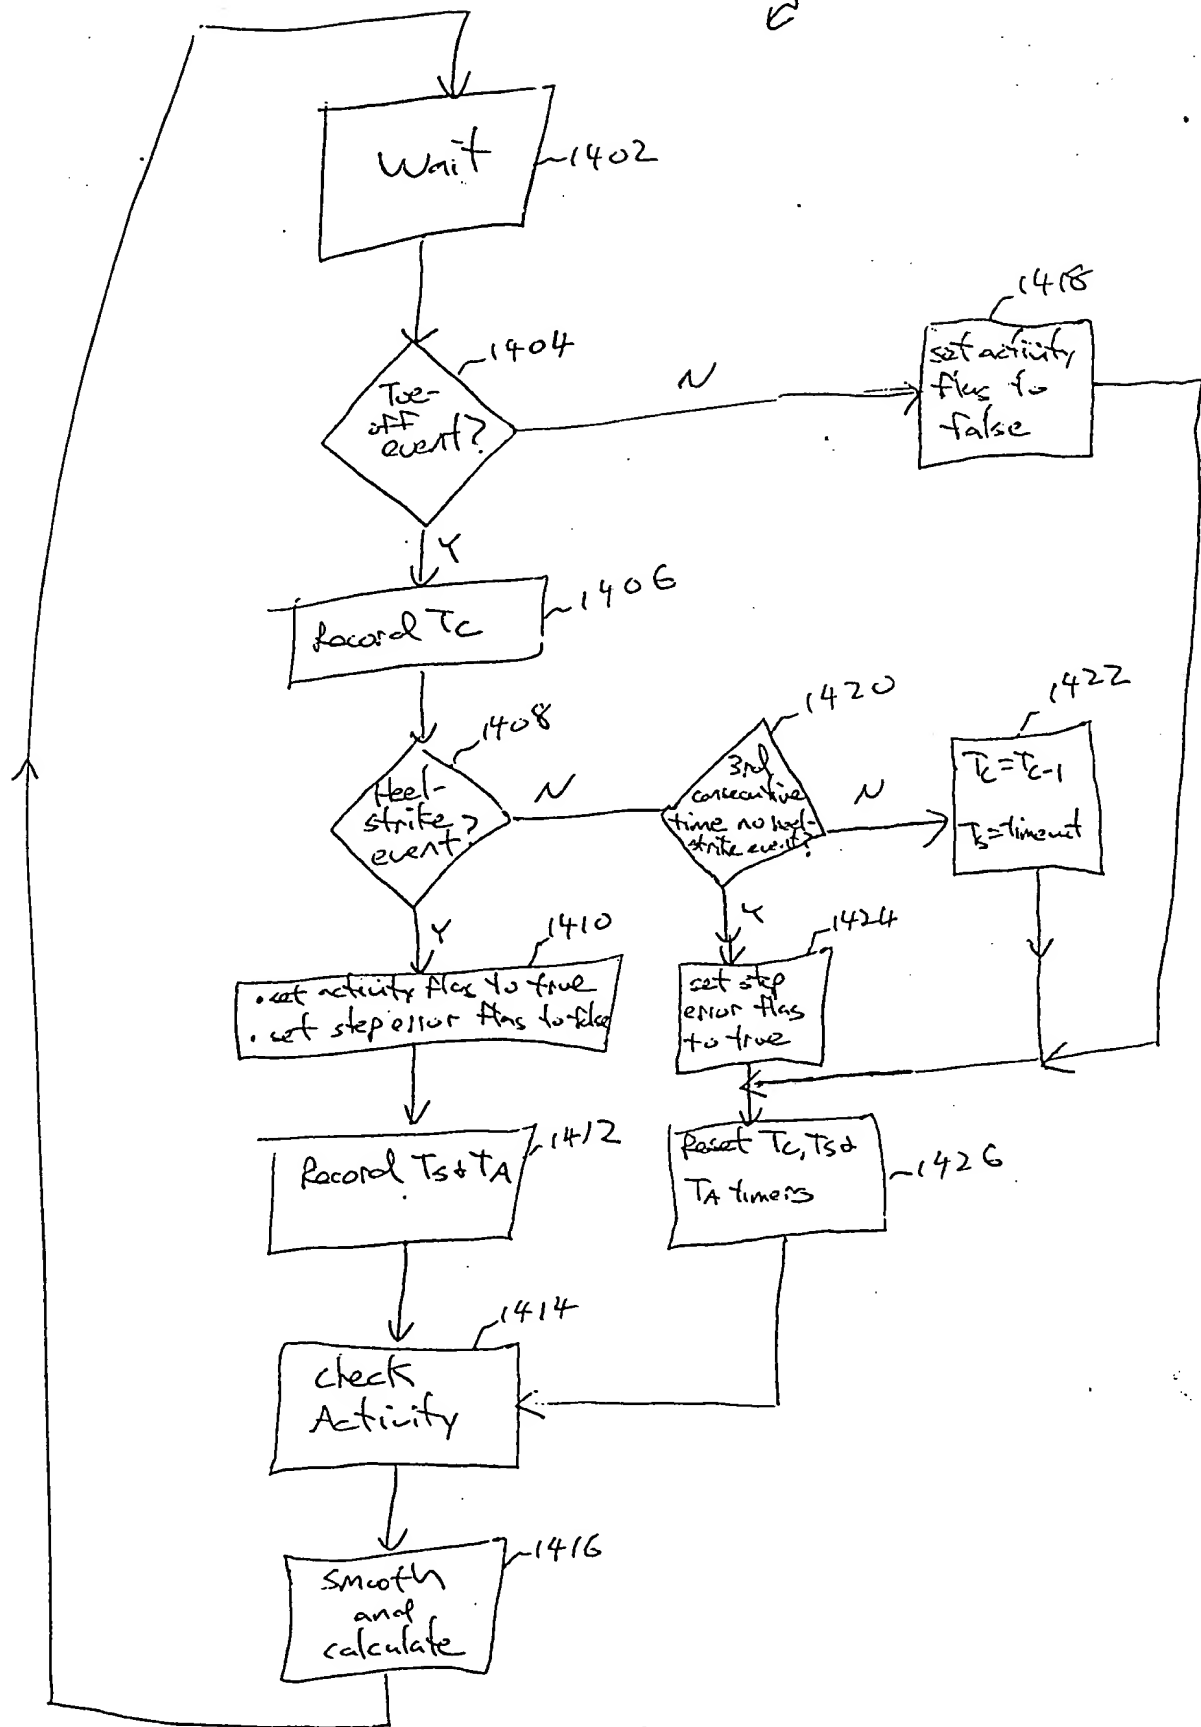 Wait
1402
1418
set activity
flag to
false
1404
Toe-
off
event?
N
Y
1406
Record Tc
1408
Heel-
strike
event?
N
1420
3rd
consecutive
time no heel-
strike event?
N
1422
Tc = Tc-1
Ts = timeout
Y
1410
. set activity flag to true
. set step error flag to false
Y
1424
set step
error flag
to true
1412
Record Ts & TA
Reset Tc, Ts &
TA timers
1426
1414
check
Activity
1416
smooth
and
calculate